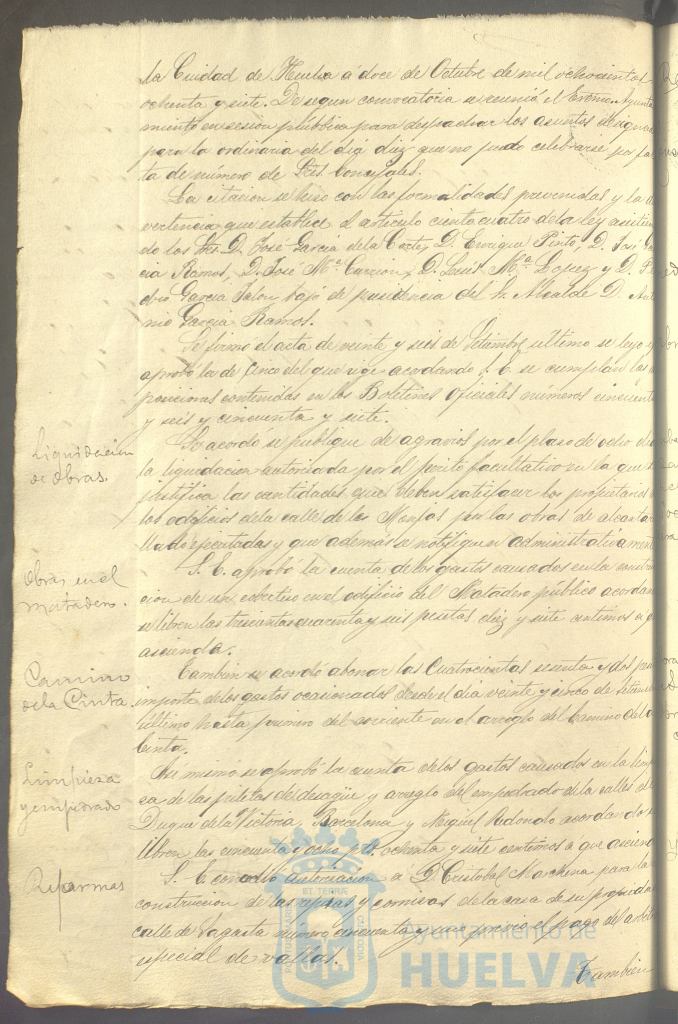 la Ciudad de Huelva á doce de Octubre de mil ochocientos
ochenta y siete. De segun convocatoria se reunió el Excmo. Ayunta
miento en sesion pública para despachar los asuntos designados
para la ordinaria del dia diez que no pudo celebrarse por fal
ta de número de Sres Concejales.
La citacion se hizo con las formalidades prevenidas y la ad
vertencia que establece el articulo ciento cuatro de la ley asistien
do los Sres. D. José Garcia de la Corte, D. Enrique Pinto, D. José Gar
cia Ramos, D. José Mª Carrion, D. Luis Mª Lopez y D. Pe
dro Garcia Jalon bajo de presidencia del Sr. Alcalde D. Anto
nio Garcia Ramos.
Se firmó el acta de veinte y seis de Setiembre ultimo se leyó y
aprobó la de cinco del que rige acordando S. E. se cumplan las
posiciones contenidas en los Boletines Oficiales números cincuenta
y seis y cincuenta y siete.
Liquidacion
de obras.
Se acordó se publique de agravios por el plazo de ocho dias
la liquidacion autorizada por el perito facultativo en la que se
justifica las cantidades que deben satisfacer los propietarios de
los edificios de la calle de las Monjas por las obras de alcantari
llado ejecutadas y que además se notifiquen administrativamente
Obras en el
matadero.
S. E. aprobó la cuenta de los gastos causados en la construc
cion de un en el edificio del Matadero público acordando
se libren las trescientas cuarenta y seis pesetas diez y siete centimos á que
ascienda.
Camino
de la Cinta
Tambien se acordó abonar las Cuatrocientas sesenta y dos pesetas
importe de los gastos ocasionados desde el dia veinte y cinco de Setiembre
último hasta primero del corriente en el arreglo del Camino de la
Cinta.
Limpieza
y empedrado
Asi mismo se aprobó la cuenta de los gastos causados en la limpie
za de las piletas de desagüe y arreglo del empedrado de la calles del
Duque de la Victoria, Barcelona y Miguel Redondo acordando se
libren las cincuenta y ocho pts. ochenta y siete centimos á que asciende
Reformas
S. E. concedió autorizacion á D. Cristobal Machena para la
construccion de las repisas y cornisas de la casa de su propiedad
calle de Sagasta número cincuenta y uno previo el pago del arbitrio
especial de vallas.
Tambien
PORTUS MARIS
ET TERRAE
CUSTODIA
Ayuntamiento de
HUELVA